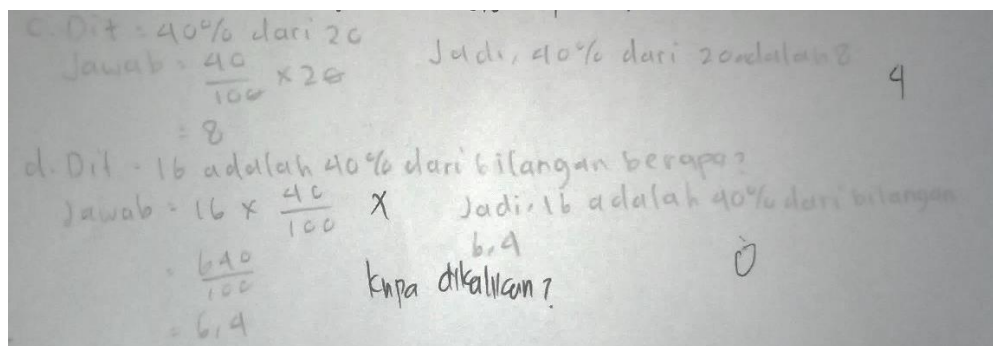 C. Dit : 40% dari 20
Jawab : 40/100 × 20
Jadi, 40% dari 20 adalah 8
4
= 8
d. Dit : 16 adalah 40% dari bilangan berapa?
Jawab = 16 × 40/100 X
Jadi, 16 adalah 40% dari bilangan
6,4
= 640/100
0
Knpa dikalikan?
= 6,4